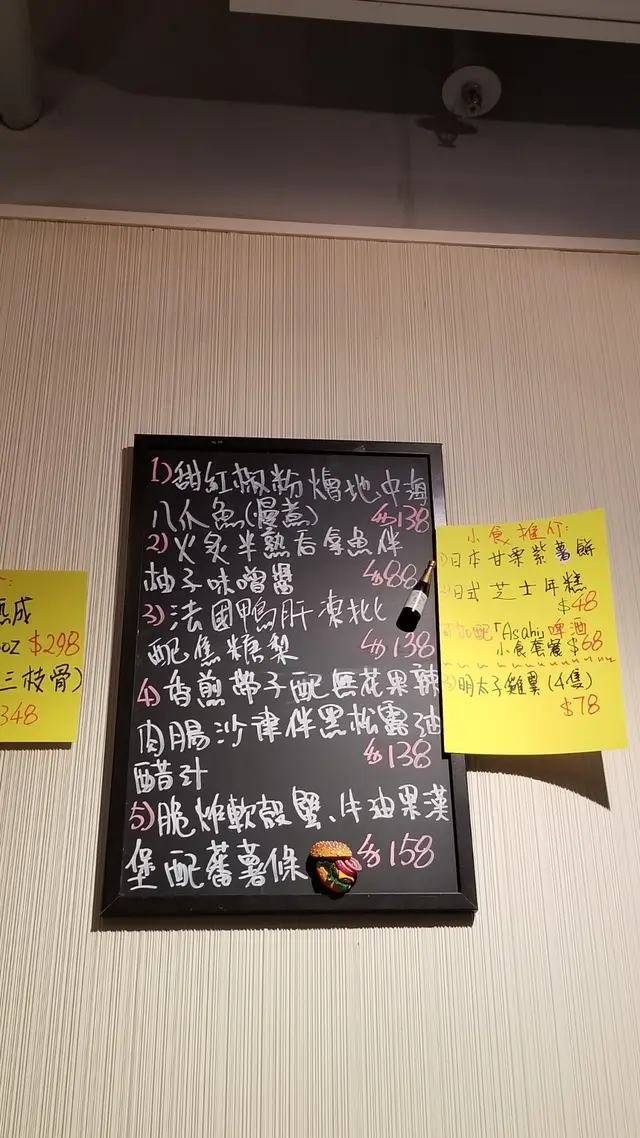 熟成
oz $298
三枝骨)
348
1)甜紅椒粉燴地中海
八爪魚(慢煮) $138
2)火炙半熟吞拿魚伴
柚子味噌醬 $88
3)法國鴨肝凍批
配焦糖梨 $138
4)香煎帶子配無花果辣
肉腸沙律伴黑松露油
醋汁 $138
5)脆炸軟殼蟹、牛油果漢
堡配蕃薯條 $158
小食推介:
1)日本甘栗紫薯餅
2)日式芝士年糕
$48
可加配「Asahi」啤酒
小食套餐 $68
3)明太子雞翼(4隻)
$78